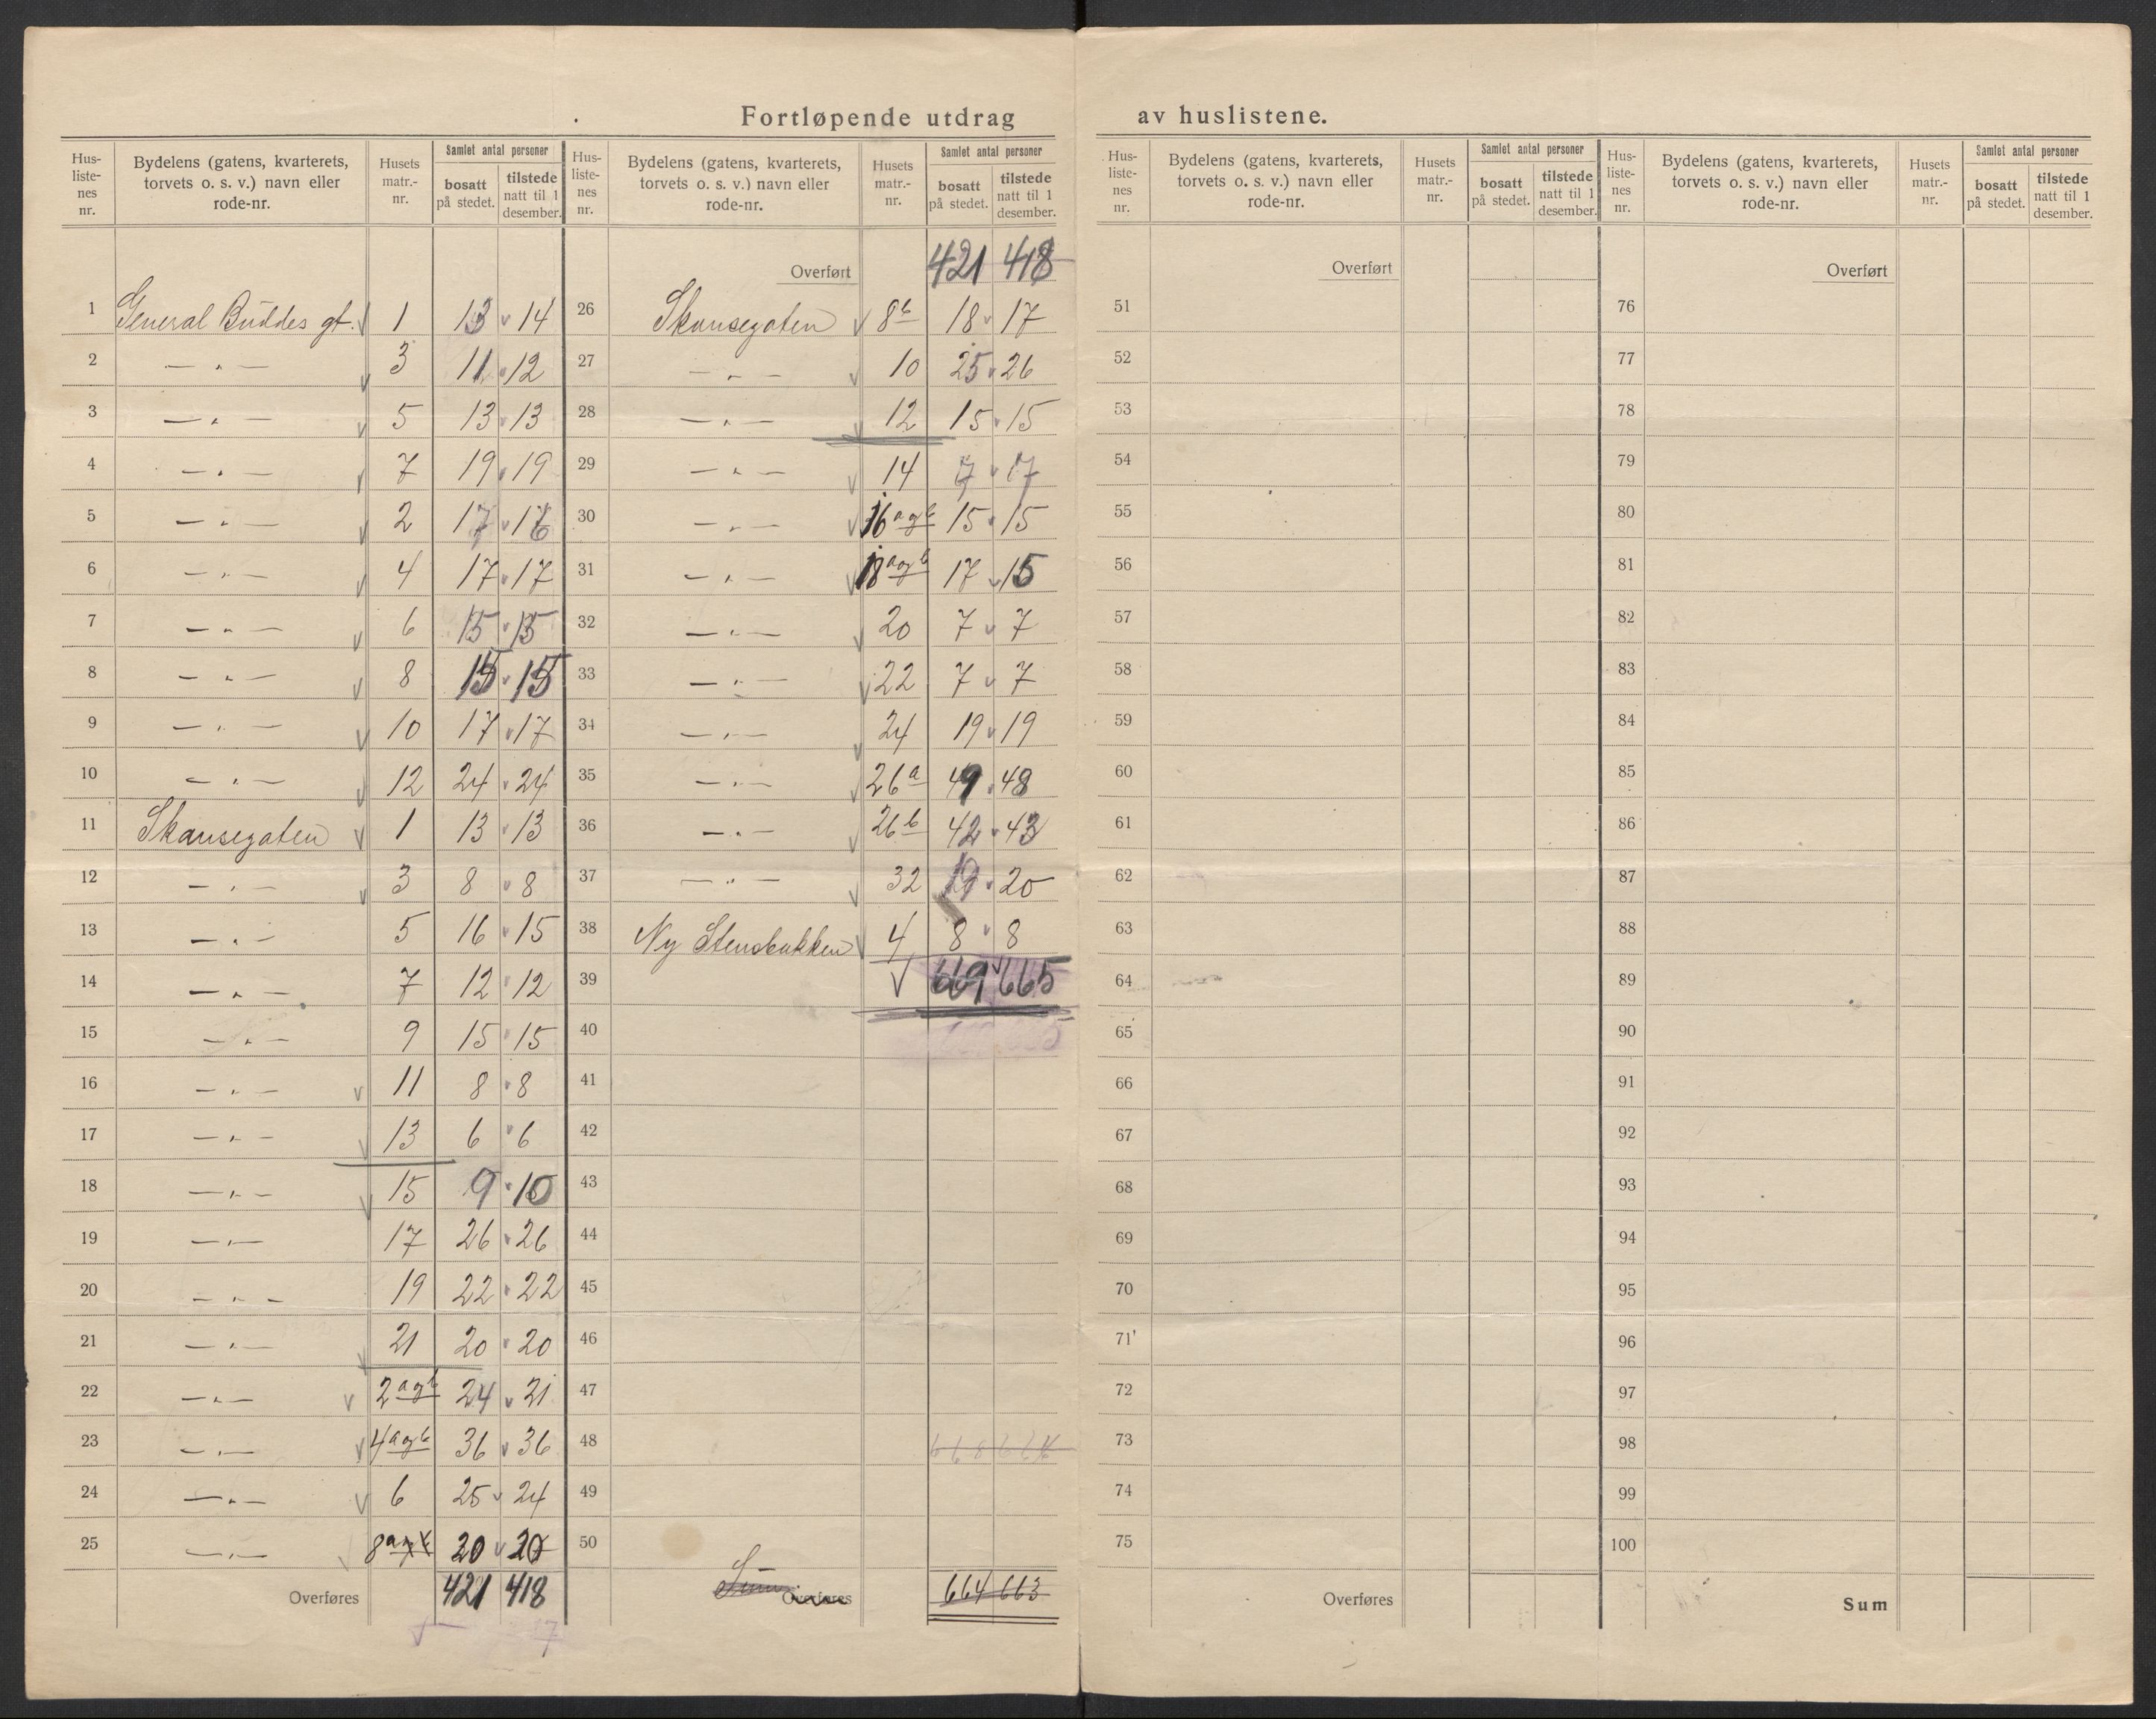 Fortløpende utdrag av huslistene.
Hus-listenes nr. Bydelens (gatens, kvarterets, torvets o. s. v.) navn eller rode-nr. Husets matr.-nr. Samlet antal personer bosatt på stedet. tilstede natt til 1 desember.
1 General Buddes gt. 1 13 14
2 — „ — 3 11 12
3 — „ — 5 13 13
4 — „ — 7 19 19
5 — „ — 2 17 16
6 — „ — 4 17 17
7 — „ — 6 15 15
8 — „ — 8 15 15
9 — „ — 10 17 17
10 — „ — 12 24 24
11 Skansegaten 1 13 13
12 — „ — 3 8 8
13 — „ — 5 16 15
14 — „ — 7 12 12
15 — „ — 9 15 15
16 — „ — 11 8 8
17 — „ — 13 6 6
18 — „ — 15 9 10
19 — „ — 17 26 26
20 — „ — 19 22 22
21 — „ — 21 20 20
22 — „ — 2 a og b 24 21
23 — „ — 4 a og b 36 36
24 — „ — 6 25 24
25 — „ — 8 a 20 20
Overføres 421 418
Hus-listenes nr. Bydelens (gatens, kvarterets, torvets o. s. v.) navn eller rode-nr. Husets matr.-nr. Samlet antal personer bosatt på stedet. tilstede natt til 1 desember.
Overført 421 418
26 Skansegaten 8 b 18 17
27 — „ — 10 25 26
28 — „ — 12 15 15
29 — „ — 14 7 7
30 — „ — 16 a og b 15 15
31 — „ — 18 a og b 17 15
32 — „ — 20 7 7
33 — „ — 22 7 7
34 — „ — 24 19 19
35 — „ — 26 a 49 48
36 — „ — 26 b 42 43
37 — „ — 32 19 20
38 Ny Stensbakken 4 8 8
39 669 665
40
41
42
43
44
45
46
47
48
49
50
Sum Overføres 664 663
Hus-listenes nr. Bydelens (gatens, kvarterets, torvets o. s. v.) navn eller rode-nr. Husets matr.-nr. Samlet antal personer bosatt på stedet. tilstede natt til 1 desember.
Overført
51
52
53
54
55
56
57
58
59
60
61
62
63
64
65
66
67
68
69
70
71
72
73
74
75
Overføres
Hus-listenes nr. Bydelens (gatens, kvarterets, torvets o. s. v.) navn eller rode-nr. Husets matr.-nr. Samlet antal personer bosatt på stedet. tilstede natt til 1 desember.
Overført
76
77
78
79
80
81
82
83
84
85
86
87
88
89
90
91
92
93
94
95
96
97
98
99
100
Sum